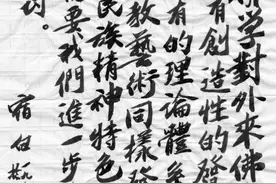 學對外來佛
有創造性的發
有的理論體系
教藝術同樣發
民族精神特色
要我們進一步
宿白